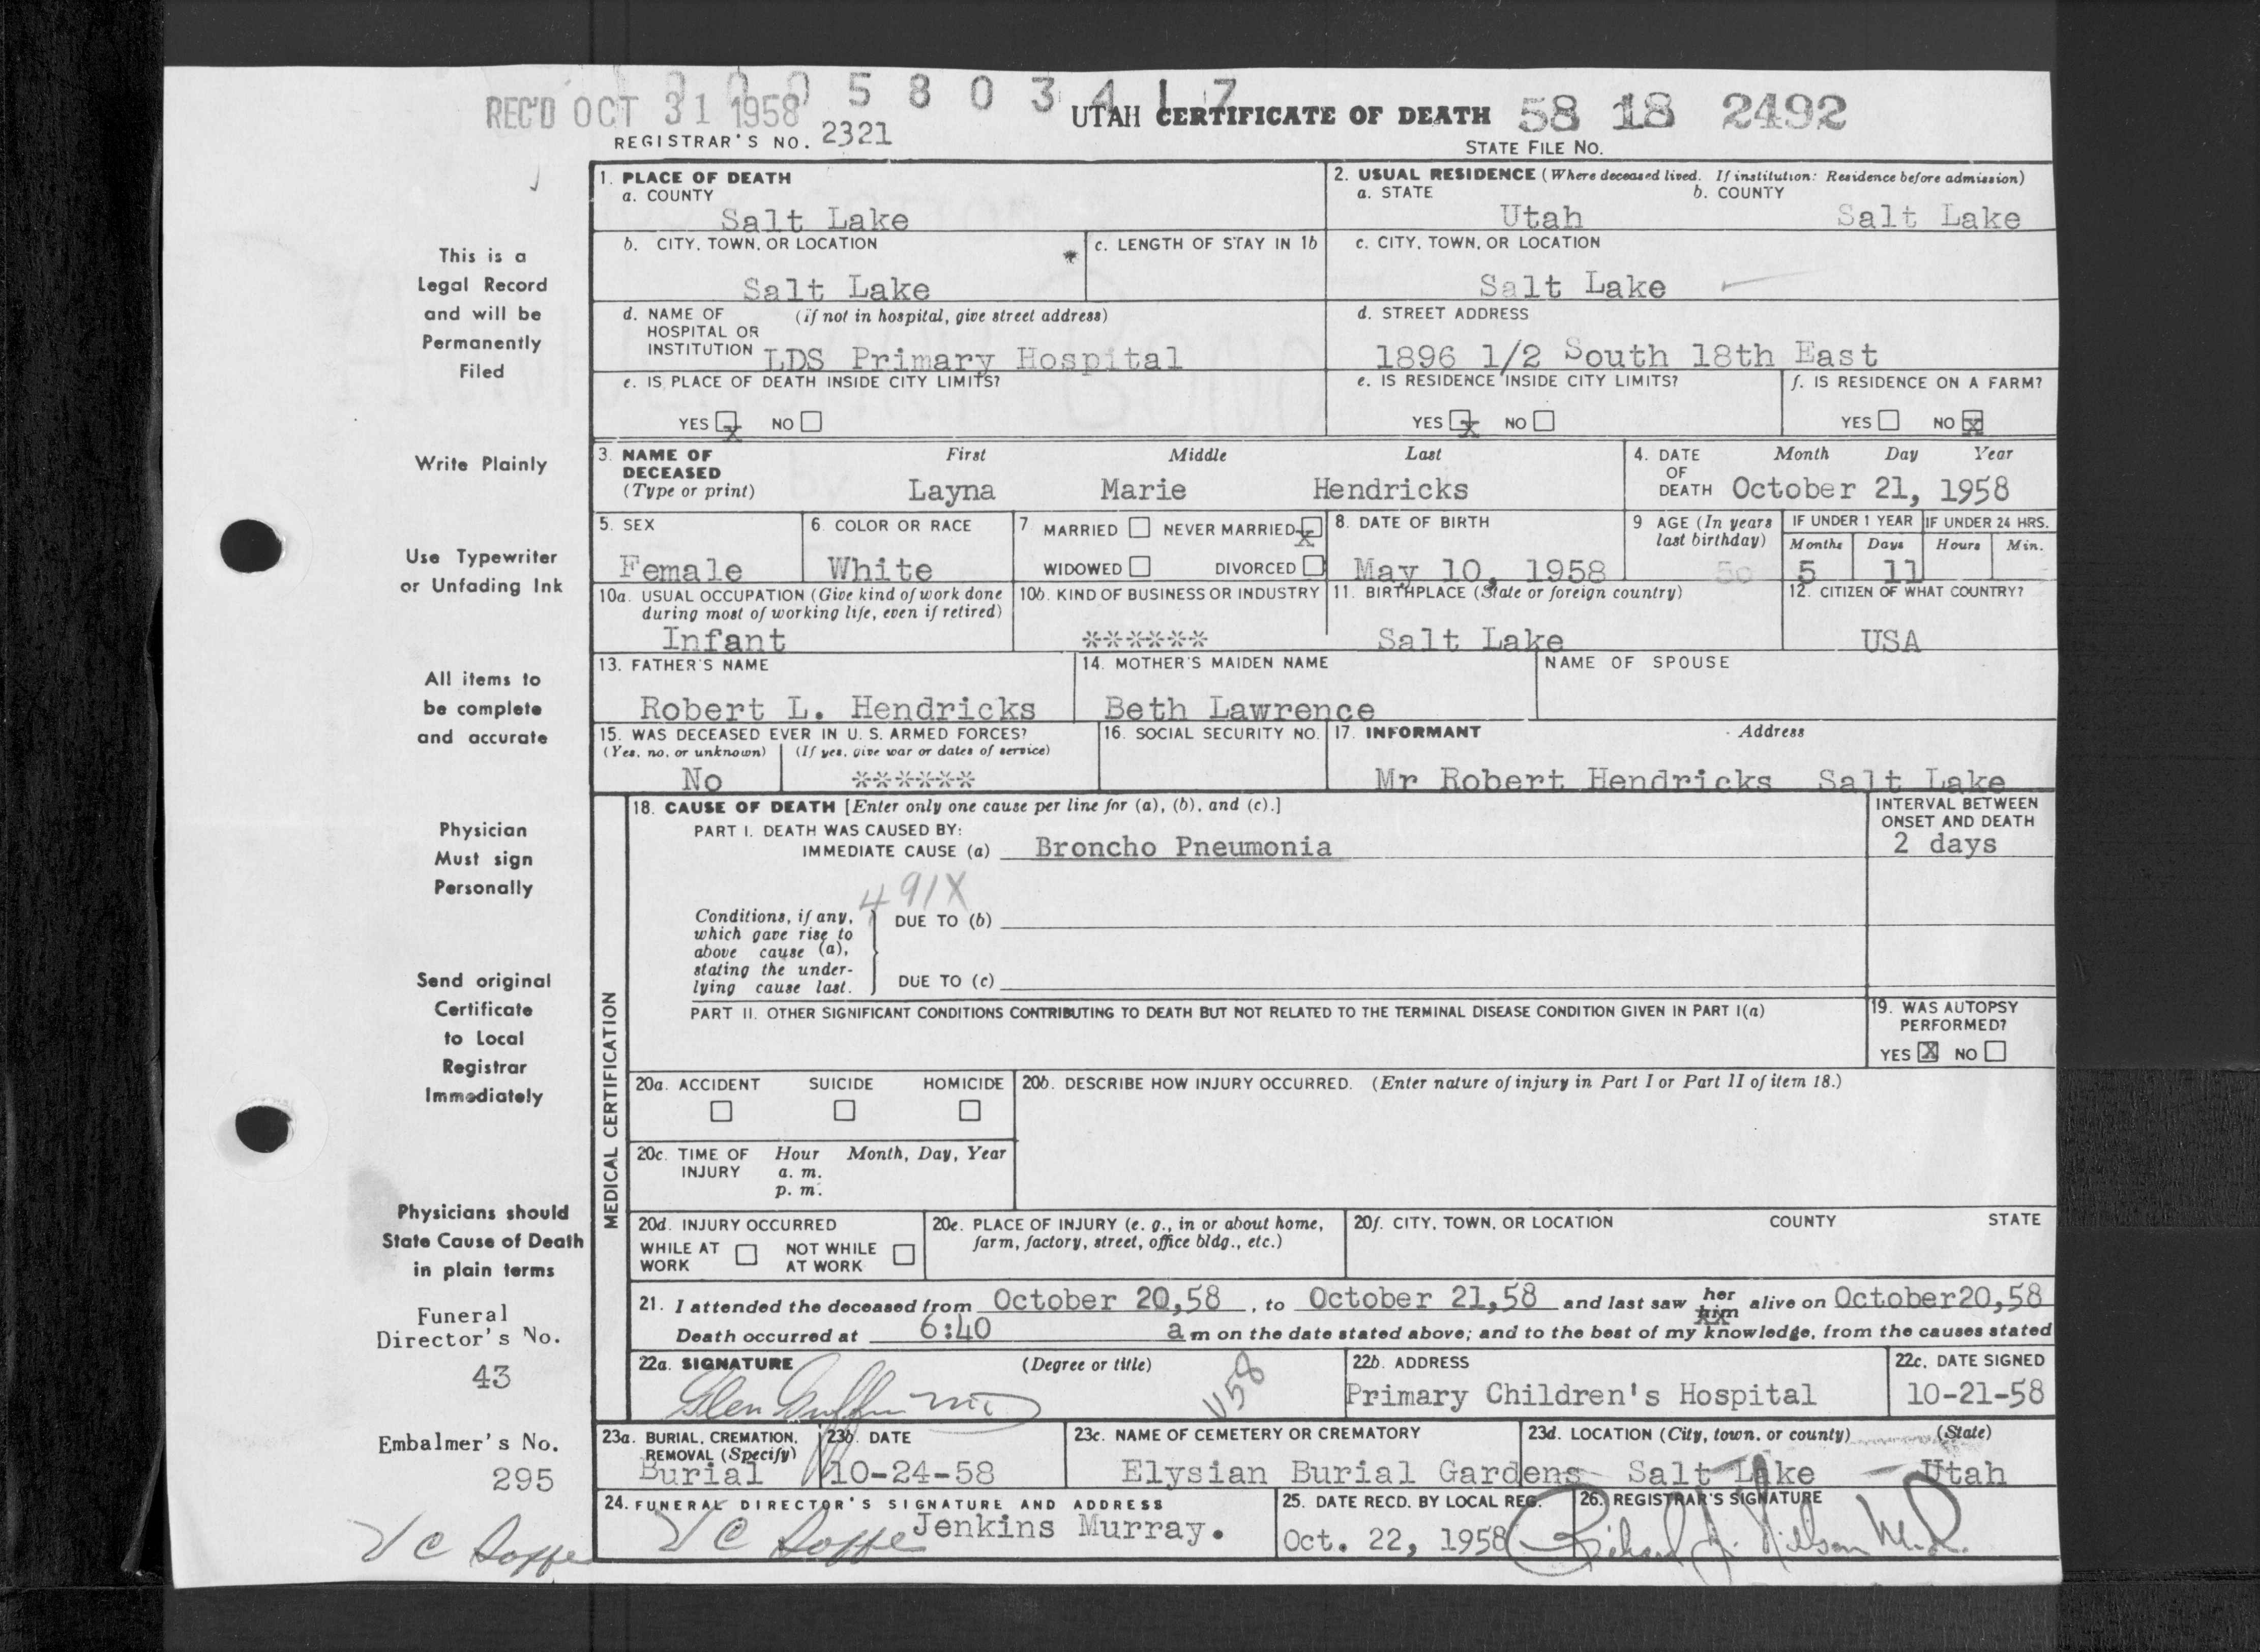 1 0 0 5 8 0 3 4 1 7
REC'D OCT 31 1958
UTAH CERTIFICATE OF DEATH 58 18 2492
REGISTRAR'S NO. 2321
STATE FILE NO.
This is a
Legal Record
and will be
Permanently
Filed
Write Plainly
Use Typewriter
or Unfading Ink
All items to
be complete
and accurate
Physician
Must sign
Personally
Send original
Certificate
to Local
Registrar
Immediately
Physicians should
State Cause of Death
in plain terms
Funeral
Director's No.
43
Embalmer's No.
295
1. PLACE OF DEATH
a. COUNTY
Salt Lake
2. USUAL RESIDENCE (Where deceased lived. If institution: Residence before admission)
a. STATE b. COUNTY
Utah Salt Lake
b. CITY, TOWN, OR LOCATION
Salt Lake
c. LENGTH OF STAY IN 1b
c. CITY, TOWN, OR LOCATION
Salt Lake
d. NAME OF (if not in hospital, give street address)
HOSPITAL OR
INSTITUTION LDS Primary Hospital
d. STREET ADDRESS
1896 1/2 South 18th East
e. IS PLACE OF DEATH INSIDE CITY LIMITS?
YES X NO
e. IS RESIDENCE INSIDE CITY LIMITS?
YES X NO
f. IS RESIDENCE ON A FARM?
YES NO X
3. NAME OF First Middle Last
DECEASED
(Type or print) Layna Marie Hendricks
4. DATE Month Day Year
OF
DEATH October 21, 1958
5. SEX
Female
6. COLOR OR RACE
White
7. MARRIED NEVER MARRIED X
WIDOWED DIVORCED
8. DATE OF BIRTH
May 10, 1958
9 AGE (In years
last birthday)
IF UNDER 1 YEAR IF UNDER 24 HRS.
Months Days Hours Min.
5 11
10a. USUAL OCCUPATION (Give kind of work done
during most of working life, even if retired)
Infant
10b. KIND OF BUSINESS OR INDUSTRY
******
11. BIRTHPLACE (State or foreign country)
Salt Lake
12. CITIZEN OF WHAT COUNTRY?
USA
13. FATHER'S NAME
Robert L. Hendricks
14. MOTHER'S MAIDEN NAME
Beth Lawrence
NAME OF SPOUSE
15. WAS DECEASED EVER IN U. S. ARMED FORCES?
(Yes, no, or unknown) (If yes, give war or dates of service)
No ******
16. SOCIAL SECURITY NO.
17. INFORMANT Address
Mr Robert Hendricks Salt Lake
MEDICAL CERTIFICATION
18. CAUSE OF DEATH [Enter only one cause per line for (a), (b), and (c).]
PART I. DEATH WAS CAUSED BY:
IMMEDIATE CAUSE (a) Broncho Pneumonia
INTERVAL BETWEEN
ONSET AND DEATH
2 days
491X
Conditions, if any,
which gave rise to
above cause (a),
stating the under-
lying cause last.
DUE TO (b)
DUE TO (c)
PART II. OTHER SIGNIFICANT CONDITIONS CONTRIBUTING TO DEATH BUT NOT RELATED TO THE TERMINAL DISEASE CONDITION GIVEN IN PART I(a)
19. WAS AUTOPSY
PERFORMED?
YES X NO
20a. ACCIDENT SUICIDE HOMICIDE
20b. DESCRIBE HOW INJURY OCCURRED. (Enter nature of injury in Part I or Part II of item 18.)
20c. TIME OF Hour Month, Day, Year
INJURY a. m.
p. m.
20d. INJURY OCCURRED
WHILE AT NOT WHILE
WORK AT WORK
20e. PLACE OF INJURY (e. g., in or about home,
farm, factory, street, office bldg., etc.)
20f. CITY, TOWN, OR LOCATION COUNTY STATE
21. I attended the deceased from October 20,58, to October 21,58 and last saw her him alive on October20,58
Death occurred at 6:40 a m on the date stated above; and to the best of my knowledge, from the causes stated
22a. SIGNATURE (Degree or title)
Glen Griffin MD
V58
22b. ADDRESS
Primary Children's Hospital
22c. DATE SIGNED
10-21-58
23a. BURIAL, CREMATION,
REMOVAL (Specify)
Burial
23b. DATE
10-24-58
23c. NAME OF CEMETERY OR CREMATORY
Elysian Burial Gardens
23d. LOCATION (City, town, or county) (State)
Salt Lake Utah
24. FUNERAL DIRECTOR'S SIGNATURE AND ADDRESS
Jenkins Murray.
25. DATE RECD. BY LOCAL REG.
Oct. 22, 1958
26. REGISTRAR'S SIGNATURE
Richard J. Nilson M.D.